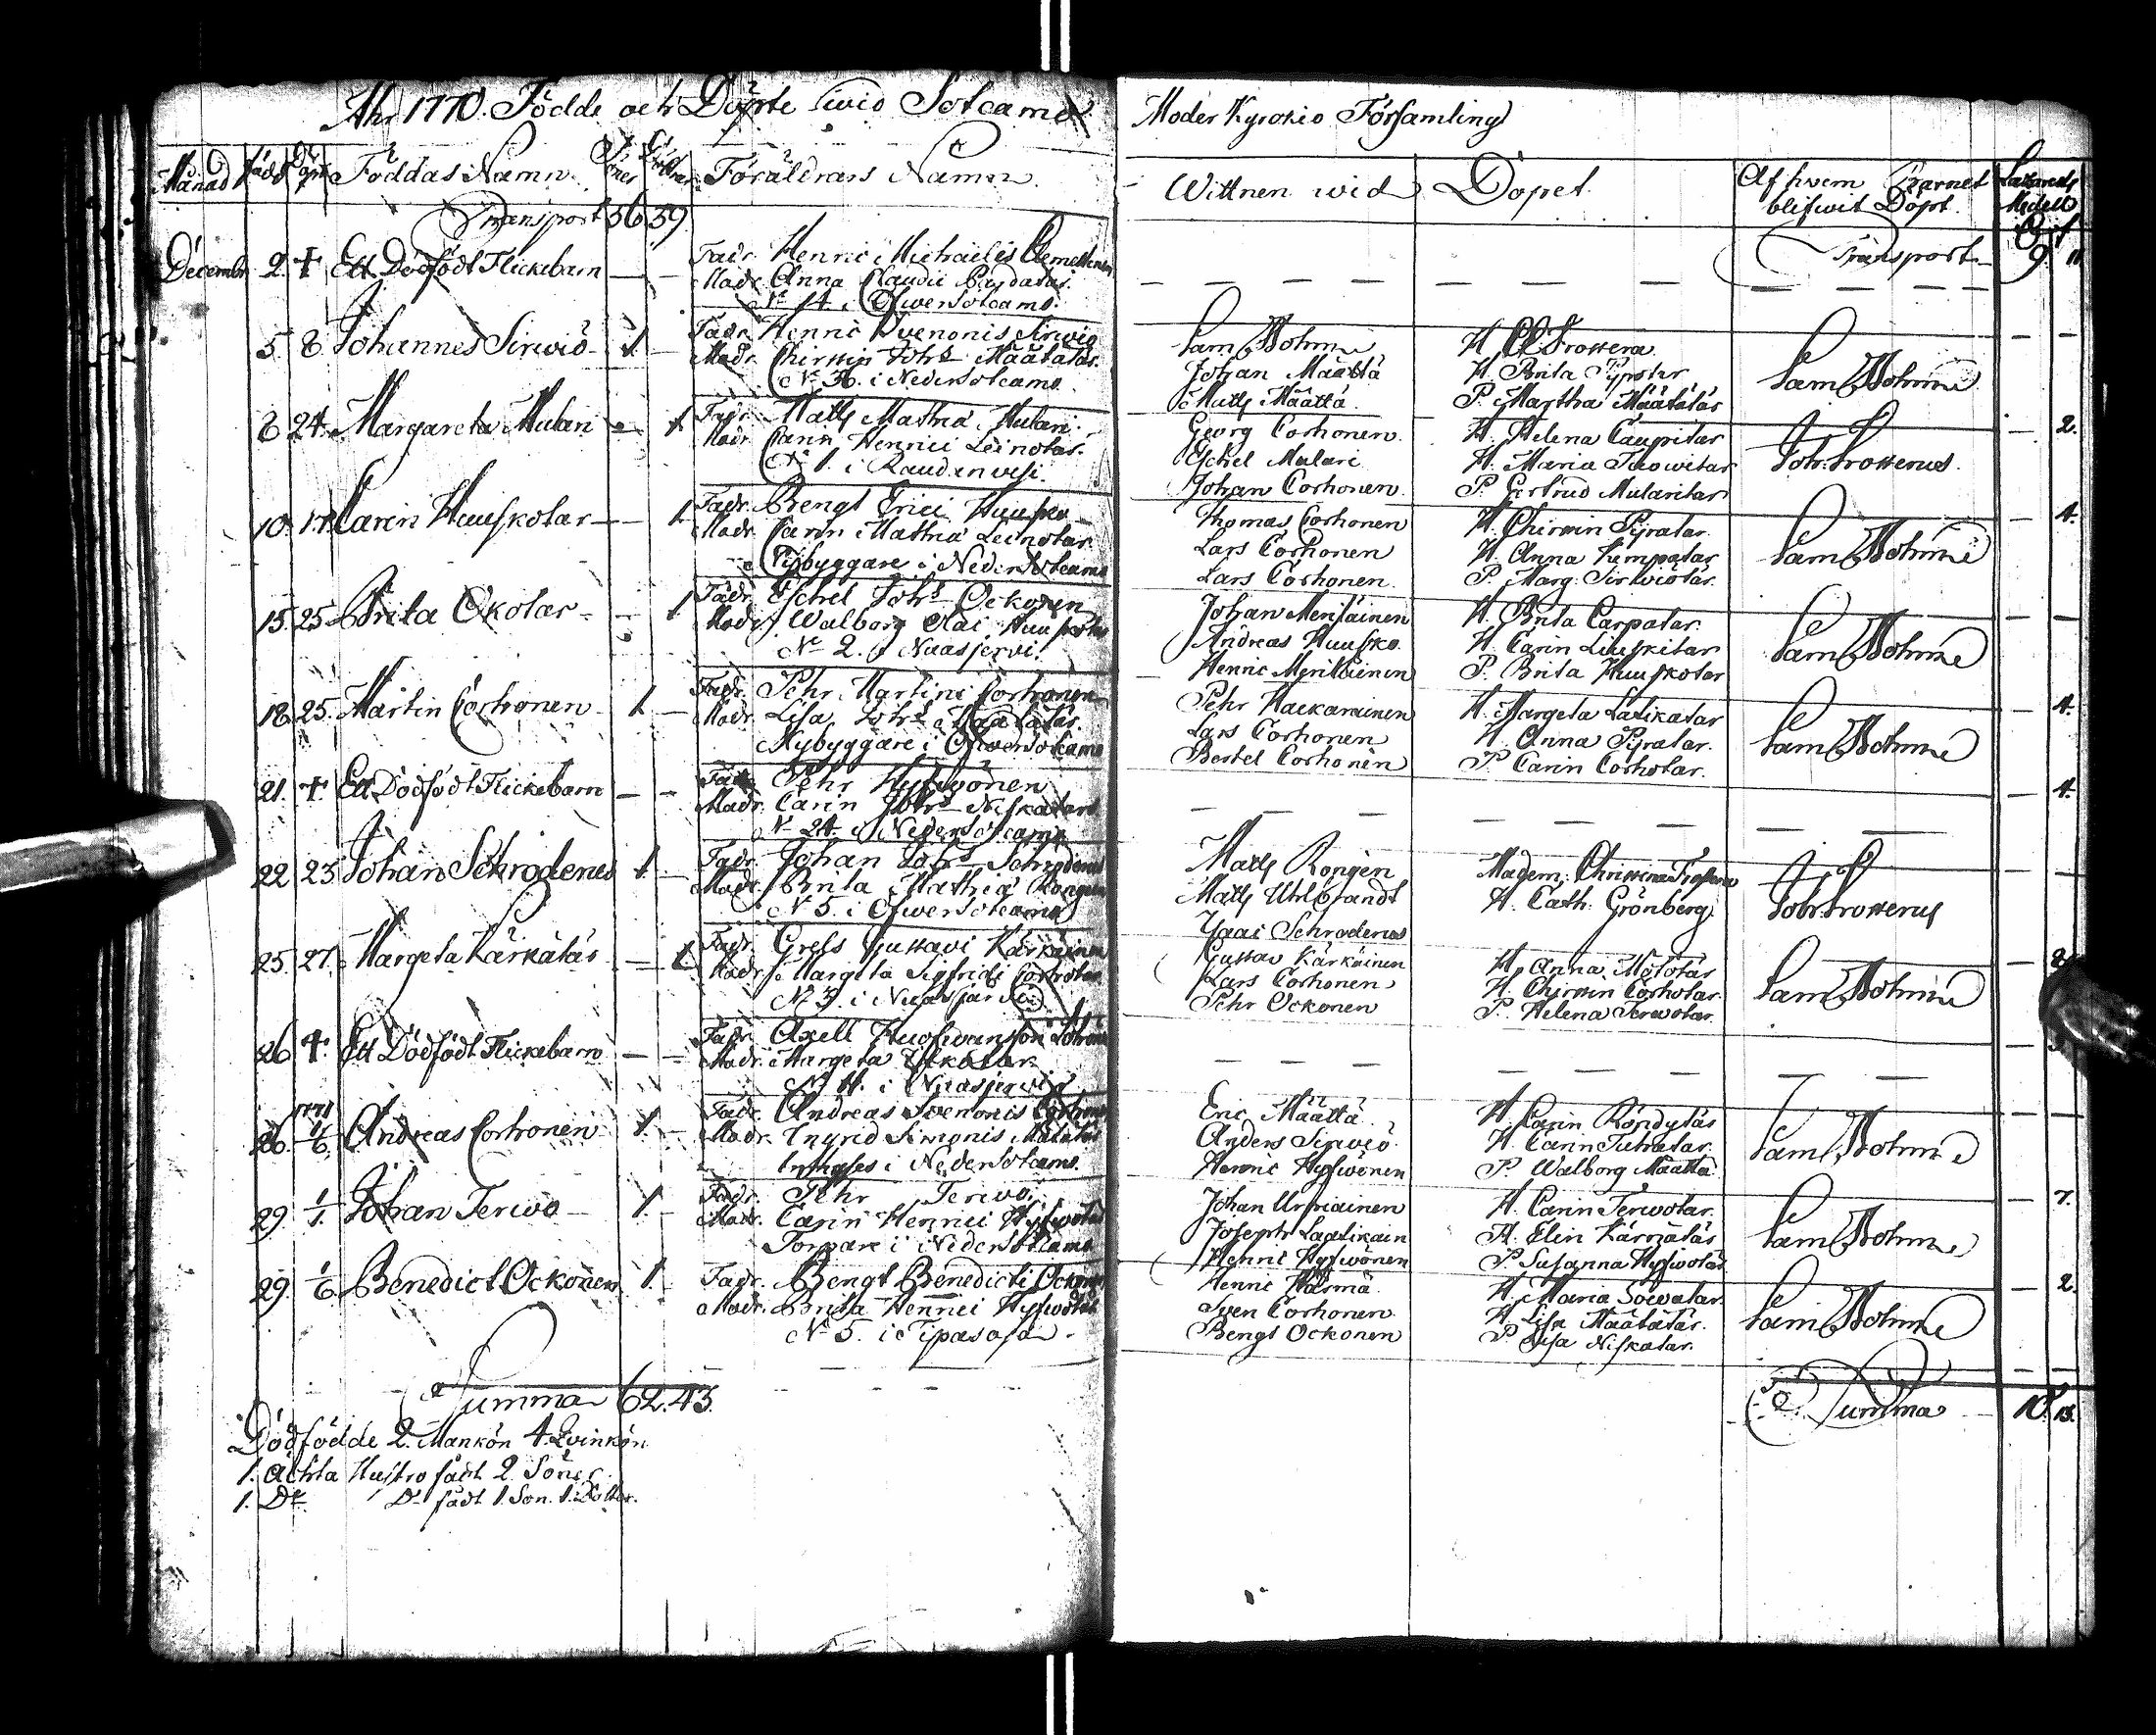 Åhr 1770. Födde och Döpte wid Sotcamo Moder Kyrokio Församling
Månad född döpt Föddas Namn Söner Döttrar Föräldrars Namn Wittnen wid Dopet Af hvem Barnet blifwit Döpt Lazaretts Medell
Transport 56 39. Transport 9. 11
Decembr 2. † Ett Dödfödt Flickebarn — — Fadr. Henric Michaelis Clemettinen
Modr. Anna Claudii
N:o 14. i ÖfwerSotcamo.
5. 8. Johannes Sirwiö 1. — Fadr. Henric Svenonis Sirwiö
Modr. Chirstin Joh:s Määtätär.
N:o 36. i NederSotcamo.
Sam Bohm
Johan Määttä
Matts Määttä.
H. Brita
P. Martha Määtätär
Sam Bohm
8 24. Margareta Mulari — 1. Fadr. Matts Mathiæ Mulari.
Modr. Carin Henrici Leinotar.
N:o 1. i Raudanvesi.
Georg Corhonen.
Eschel Mulari
Johan Corhonen.
H. Helena Caupitar
H. Maria
P. Gertrud Mularitar
Joh. Frosterus.
— 2.
10. 17. Carin Huuskotar — 1. Fadr. Bengt Erici Huusko
Modr. Carin Mathiæ Leinotar.
Nybyggare i NederSotcamo
Thomas Corhonen
Lars Corhonen
Lars Corhonen.
H. Chirstin Pyratar.
H. Anna Kempatar
P. Marg: Sirwiötär.
Sam Bohm
— 4.
15. 25. Brita Ockotar — 1 Fadr. Eschel Joh:s Ockonen
Modr. Walborg Olai Huuskotar
N:o 2. i Nuasjerwi.
Johan Meriläinen
Andreas Huusko.
Henric Meriläinen
H. Brita Carpatar.
H. Carin Liuskitar
P. Brita Huuskotar
Sam Bohm
— —
18. 25. Martin Corhonen 1. — Fadr. Pehr Martini Corhonen
Modr. Lisa Joh:s Määtätär.
Nybyggare i ÖfwerSotcamo
Pehr Hackarainen
Lars Corhonen
Bertel Corhonen
H. Margeta Latikatar
H. Anna Pyratar.
P. Carin Corhotar.
Sam Bohm
— 4.
21. † Ett Dödfödt Flickebarn — — Fadr. Pehr Hyfwönen
Modr. Carin Joh:s Niskatar
N:o 24. i NederSotcamo
— 4.
22. 23. Johan Schroderus 1. — Fadr. Johan Joh:s Schroderus
Modr. Brita Mathiæ Rongen
N:o 5. i ÖfwerSotcamo
Matts Rongen
Matts Uhlbrandt
Isaac Schroderus
Madem: Christina Frosterus
H. Cath: Grönberg
Joh. Frosterus
— —
25. 27. Margeta Kärkätär — 1. Fadr. Grels Gustavi Kärkäinen
Modr. Margeta Sigfridi Corhotar
N:o 3. i Nuasjärwi
Gustav Kärkäinen
Lars Corhonen
Pehr Ockonen
H. Anna
H. Chirstin Corhotar.
P. Helena Terwotar.
Sam Bohm
26 † Ett Dödfödt Flickebarn — — Fadr. Axell
Modr. Margeta
i Nuasjerwi
1771
26. 1/6. Andreas Corhonen 1. — Fadr. Andreas Svenonis Corhonen
Modr. Ingrid Simonis Määtätär
Inhyses i NederSotcamo.
Eric Määttä
Anders Sirwiö.
Henric Hyfwönen
H. Carin Röndytär
H. Carin
P. Walborg Määttä
Sam Bohm
— —
29. 1/1. Johan Terwo 1. — Fadr. Pehr Terwo.
Modr. Carin Henrici Hyfwötär
Torpare i NederSotcamo
Johan Urpiainen
Joseph Laatikain
Henric Hyfwönen
H. Carin Terwotar.
H. Elin Kärnätär
P. Susanna Hyfwötär
Sam Bohm
— 7.
29. 1/6. Benedict Ockonen 1. — Fadr. Bengt Benedicti Ockonen
Modr. Brita Henrici Hyfwötär
N:o 5. i Tipasoja.
Henric Härmä.
Sven Corhonen
Bengt Ockonen
H. Maria
H. Lisa Määtätär.
P. Lisa Niskatar.
Sam Bohm
— 2.
Summa 62. 43. Summa 10. 13.
Dödfödde 2. Mankön 4. Qvinkön.
1. ächta Hustro födt 2. Söner.
1. D:o D:o födt 1. Son. 1. Dotter.